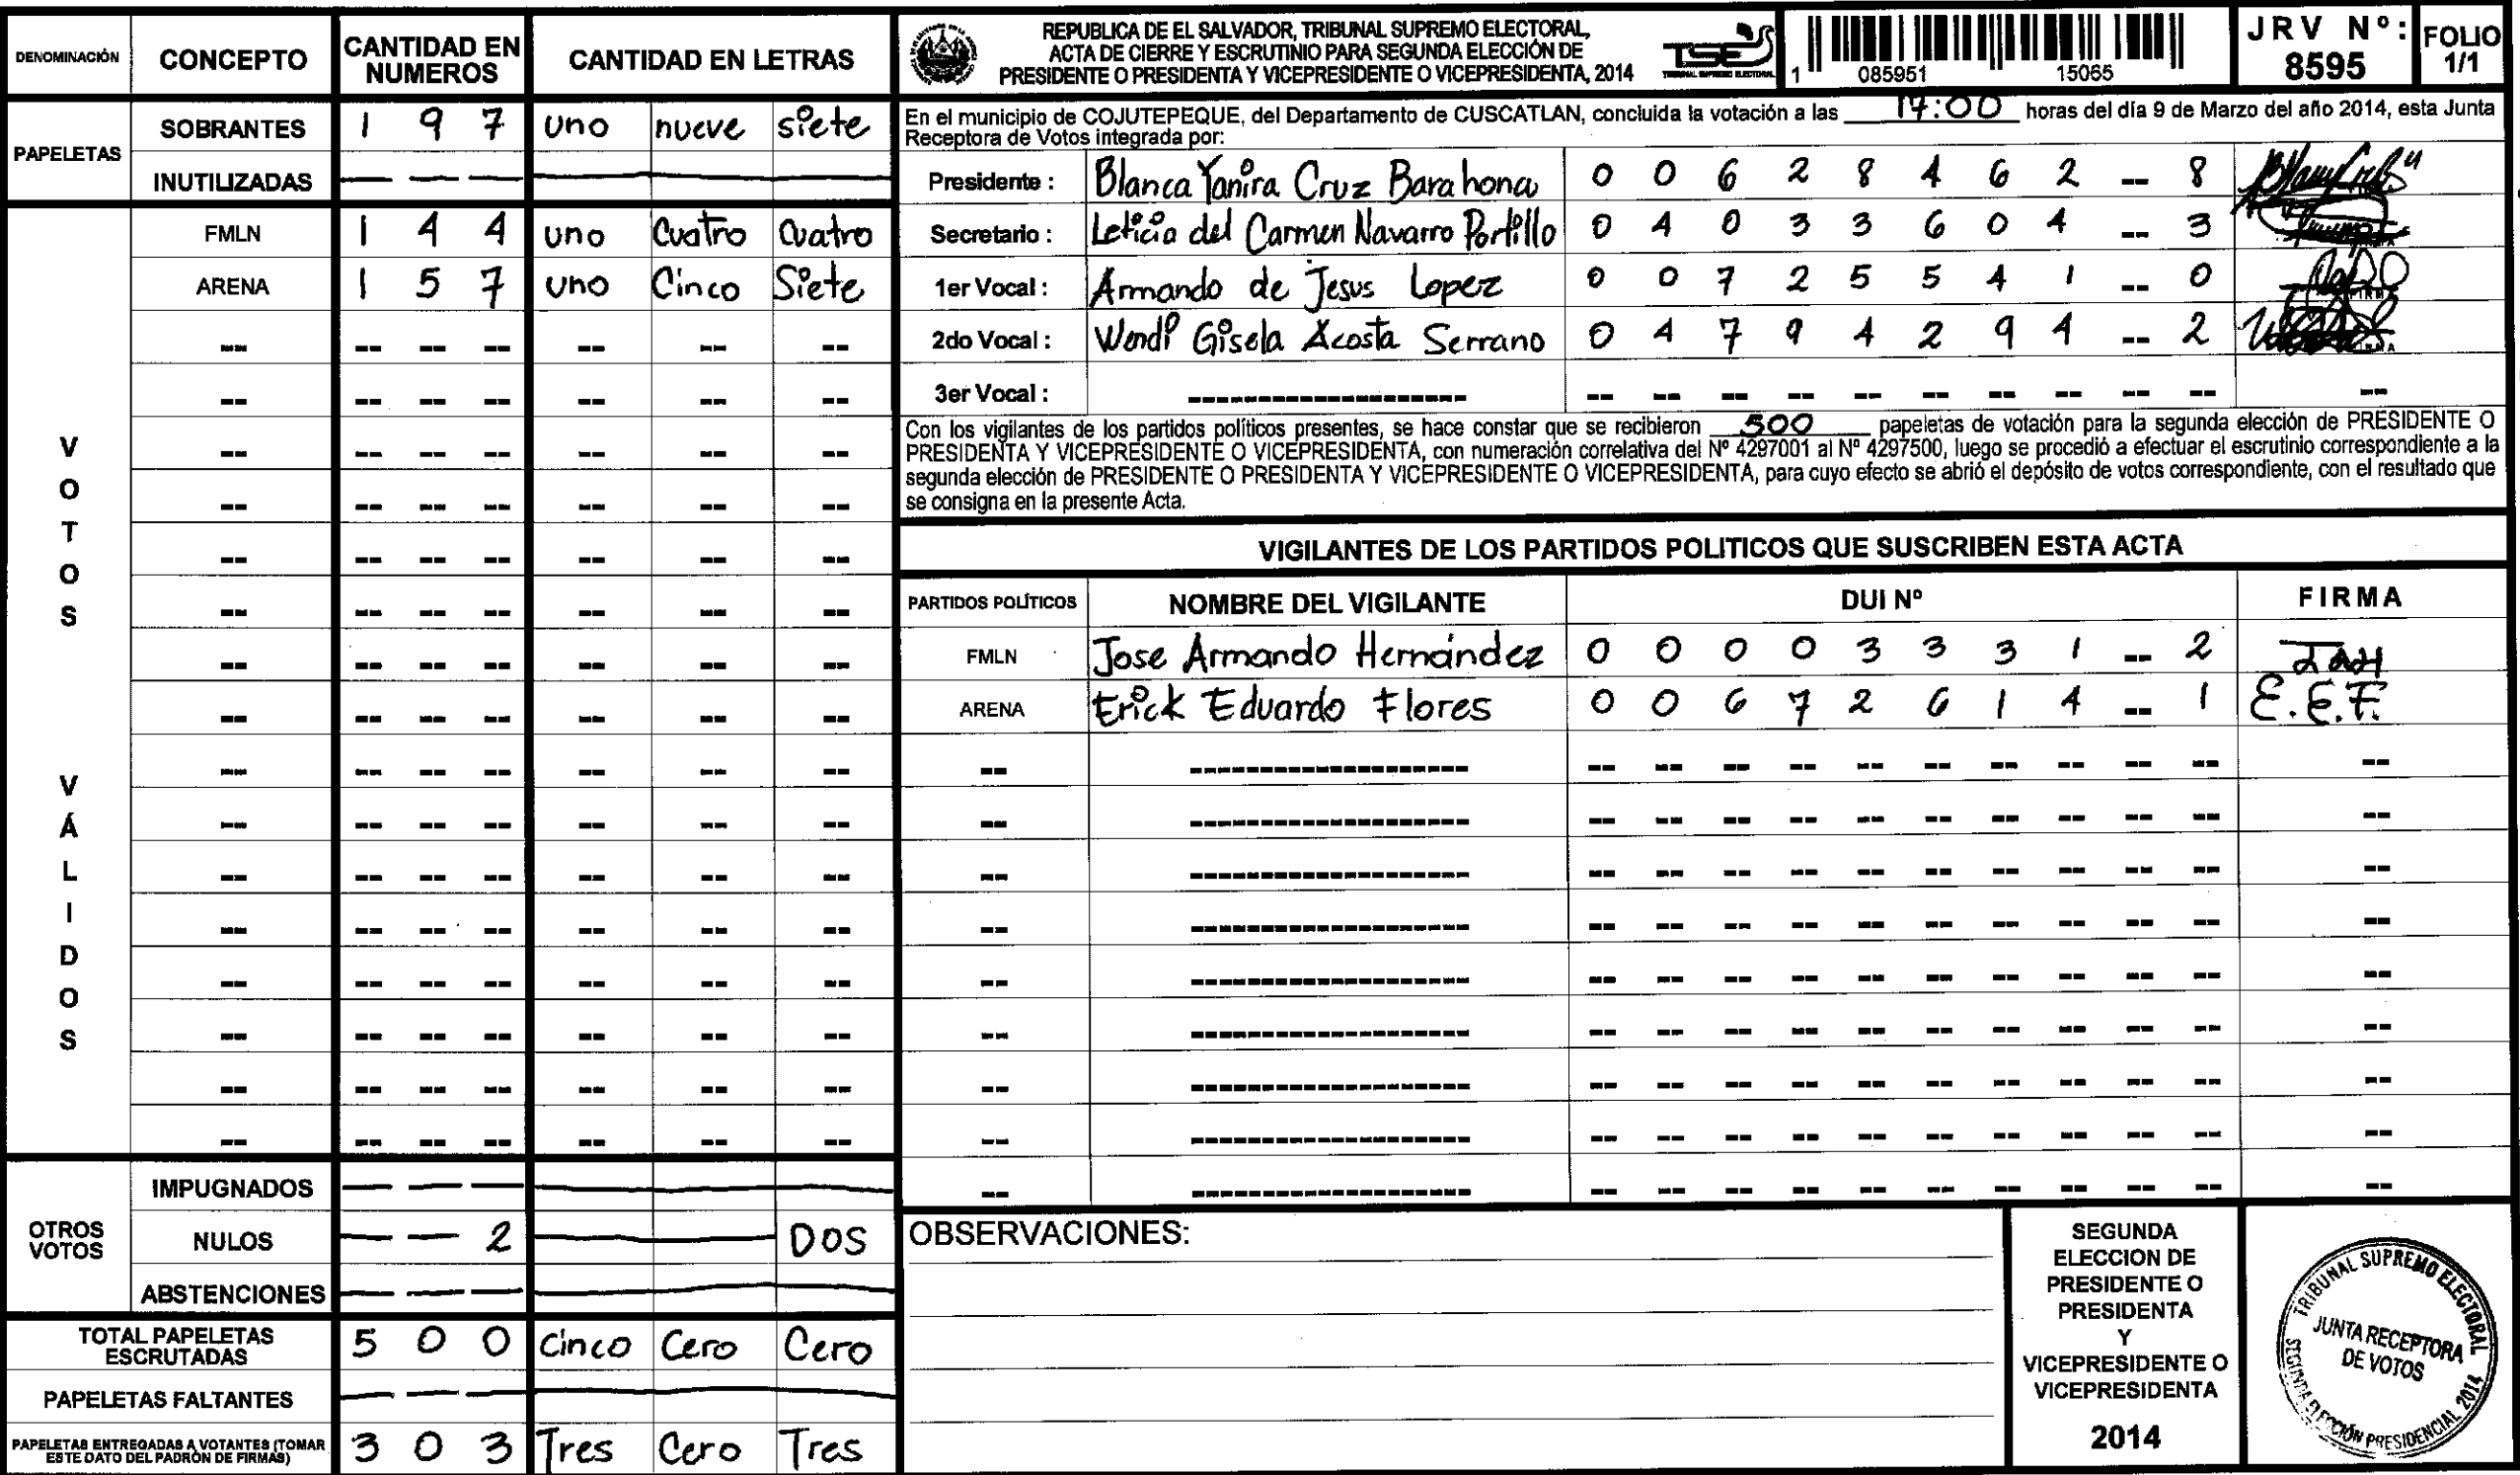 DENOMINACIÓN CONCEPTO CANTIDAD EN NUMEROS CANTIDAD EN LETRAS
PAPELETAS
SOBRANTES 1 9 7 uno nueve siete
INUTILIZADAS
VOTOS VÁLIDOS
FMLN 1 4 4 uno Cuatro Cuatro
ARENA 1 5 7 uno Cinco Siete
OTROS VOTOS
IMPUGNADOS
NULOS 2 DOS
ABSTENCIONES
TOTAL PAPELETAS ESCRUTADAS 5 0 0 Cinco Cero Cero
PAPELETAS FALTANTES
PAPELETAS ENTREGADAS A VOTANTES (TOMAR ESTE DATO DEL PADRÓN DE FIRMAS) 3 0 3 Tres Cero Tres
REPUBLICA DE EL SALVADOR, TRIBUNAL SUPREMO ELECTORAL,
ACTA DE CIERRE Y ESCRUTINIO PARA SEGUNDA ELECCIÓN DE
PRESIDENTE O PRESIDENTA Y VICEPRESIDENTE O VICEPRESIDENTA, 2014
TSE
TRIBUNAL SUPREMO ELECTORAL
1 085951 15065
JRV Nº: 8595
FOLIO 1/1
En el municipio de COJUTEPEQUE, del Departamento de CUSCATLAN, concluida la votación a las 17:00 horas del día 9 de Marzo del año 2014, esta Junta
Receptora de Votos integrada por:
Presidente : Blanca Yanira Cruz Barahona 0 0 6 2 8 4 6 2 -- 8
Secretario : Leticia del Carmen Navarro Portillo 0 4 0 3 3 6 0 4 -- 3
1er Vocal : Armando de Jesus Lopez 0 0 7 2 5 5 4 1 -- 0
2do Vocal : Wendi Gisela Acosta Serrano 0 4 7 9 4 2 9 4 -- 2
3er Vocal :
Con los vigilantes de los partidos políticos presentes, se hace constar que se recibieron 500 papeletas de votación para la segunda elección de PRESIDENTE O
PRESIDENTA Y VICEPRESIDENTE O VICEPRESIDENTA, con numeración correlativa del Nº 4297001 al Nº 4297500, luego se procedió a efectuar el escrutinio correspondiente a la
segunda elección de PRESIDENTE O PRESIDENTA Y VICEPRESIDENTE O VICEPRESIDENTA, para cuyo efecto se abrió el depósito de votos correspondiente, con el resultado que
se consigna en la presente Acta.
VIGILANTES DE LOS PARTIDOS POLITICOS QUE SUSCRIBEN ESTA ACTA
PARTIDOS POLÍTICOS NOMBRE DEL VIGILANTE DUI Nº FIRMA
FMLN Jose Armando Hernández 0 0 0 0 3 3 3 1 -- 2 JAH
ARENA Erick Eduardo Flores 0 0 6 7 2 6 1 4 -- 1 E.E.F.
OBSERVACIONES:
SEGUNDA
ELECCION DE
PRESIDENTE O
PRESIDENTA
Y
VICEPRESIDENTE O
VICEPRESIDENTA
2014
TRIBUNAL SUPREMO ELECTORAL
JUNTA RECEPTORA
DE VOTOS
SEGUNDA ELECCIÓN PRESIDENCIAL 2014